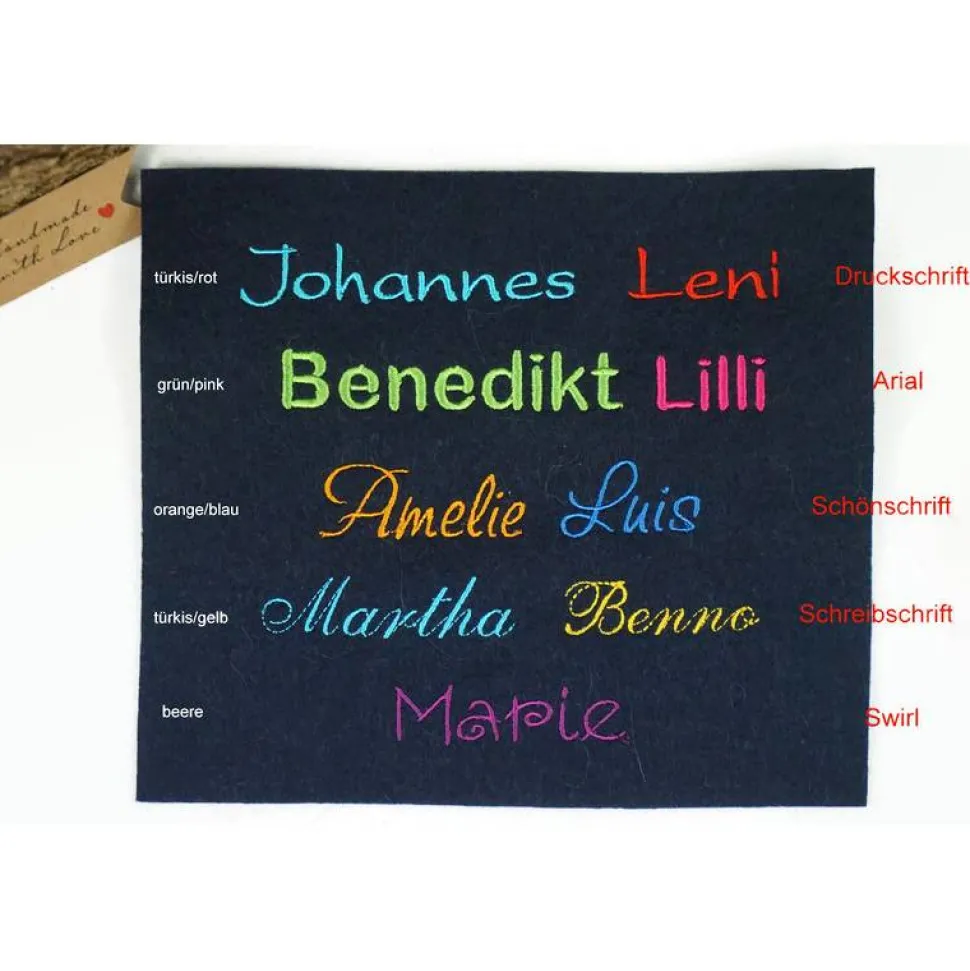 Handmade
with Love
türkis/rot Johannes Leni Druckschrift
grün/pink Benedikt Lilli Arial
orange/blau Amelie Luis Schönschrift
türkis/gelb Martha Benno Schreibschrift
beere Marie Swirl